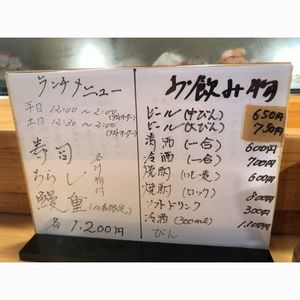 ランチメニュー
平日 12:00〜2:00
(ラストオーダー)
土日 12:30〜2:00
(ラストオーダー)
寿司
ちらし
鰻重
各 1,200円
お飲み物
ビール(中びん) 650円
ビール(大びん) 750円
清酒(一合) 600円
冷酒(一合) 700円
焼酎 600円
焼酎(ロック) 800円
ソフトドリンク 300円
冷酒(300ml) 1,100円
びん